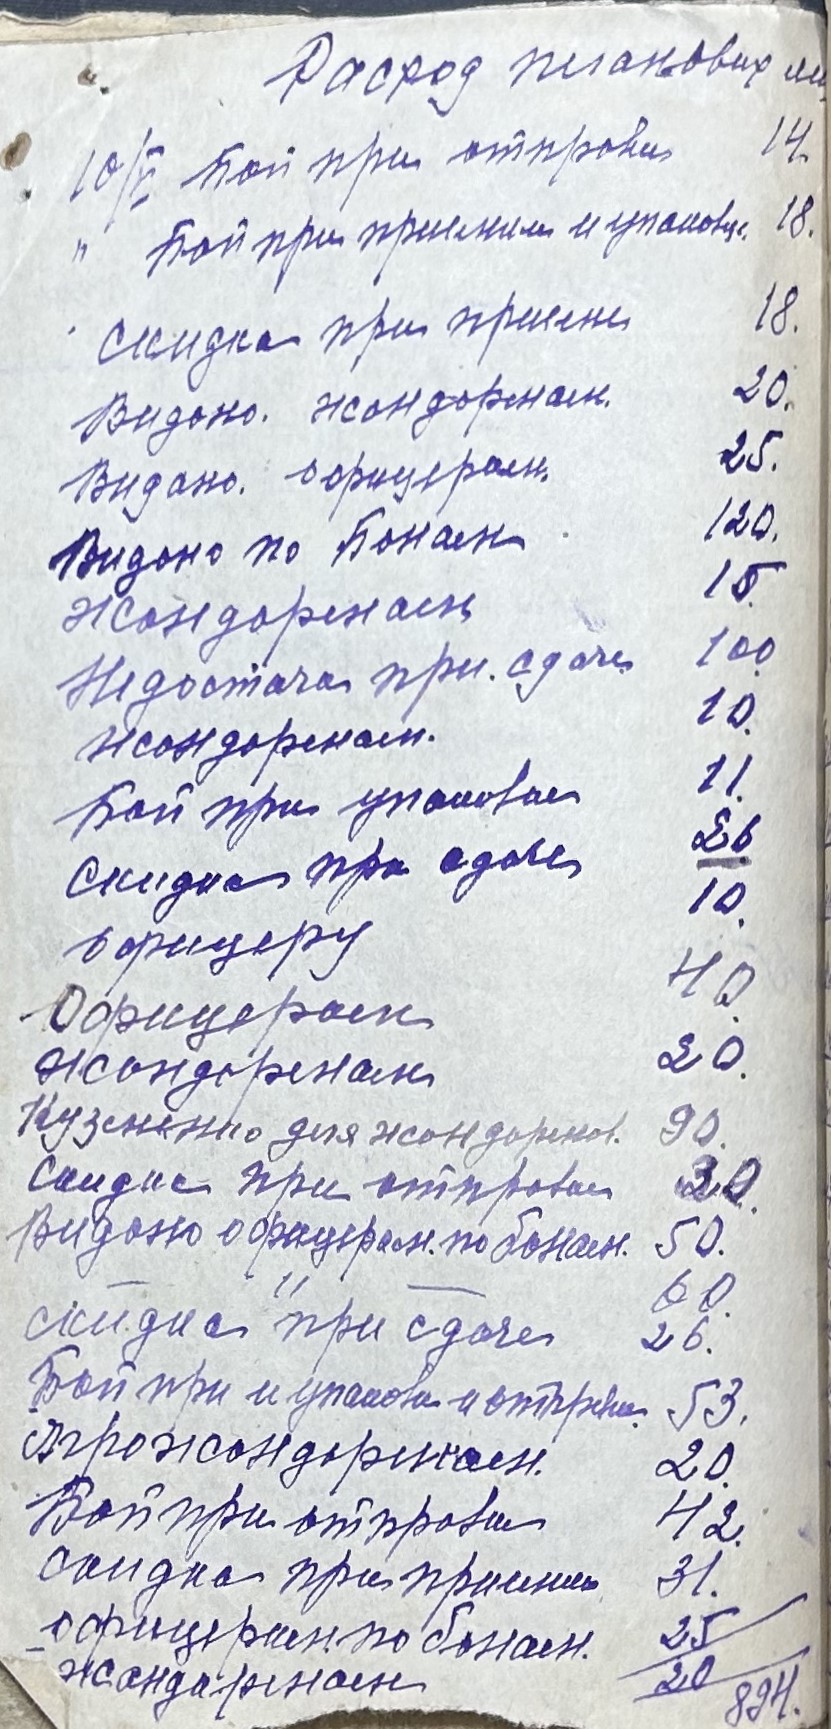 Расход плановых яи
10/V Бой при отправки 14.
" Бой при приемки и упаковке. 18.
" Скидка при приеме 18.
Видано. жондормам. 20.
Видано. офицерам. 25.
Видано по Бонам 120.
жондормам 15.
Недостача при. сдаче 100
жондормам. 10.
Бой при упаковки 11.
Скидка при сдаче 26
офицеру 10.
Офицерам 40.
жондормам 20.
Кузменко для жондормов. 90.
Скидка при отправки 30.
Видано офицерам. по бонам. 50.
— " — 60.
Скидка при сдаче 26.
Бой при и упаковки и отправки 53.
Агрожондормам. 20.
Бой при отправки 42.
Скидка при приемки 31.
офицерам. по бонам. 25
жандармам 20
894.